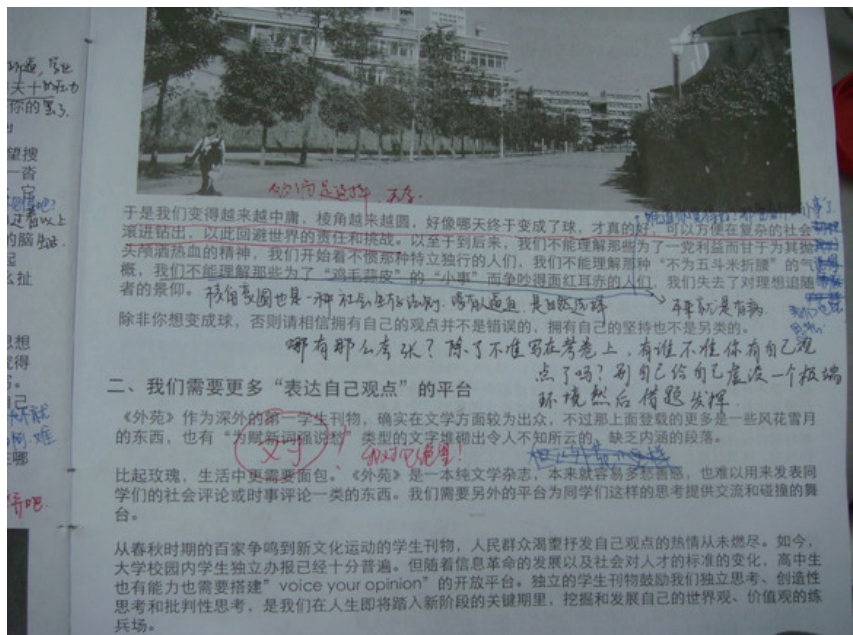 你的
望搜
一沓
的脑
么扯
思想
觉得
自己
于是我们变得越来越中庸，棱角越来越圆，好像哪天终于变成了球，才真的好，可以方便在复杂的社会
滚进钻出，以此回避世界的责任和挑战。以至于到后来，我们不能理解那些为了一党利益而甘于为其抛
头颅洒热血的精神，我们开始看不惯那种特立独行的人们，我们不能理解那种“不为五斗米折腰”的气
概，我们不能理解那些为了“鸡毛蒜皮”的“小事”而争吵得面红耳赤的人们，我们失去了对理想追随
者的景仰。
本来就是有病
除非你想变成球，否则请相信拥有自己的观点并不是错误的，拥有自己的坚持也不是另类的。
哪有那么夸张？除了不准写在考卷上，有谁不准你有自己观
点了吗？别自己给自己虚设一个极端
环境然后借题发挥
二、我们需要更多“表达自己观点”的平台
《外苑》作为深外的第一学生刊物，确实在文学方面较为出众，不过那上面登载的更多是一些风花雪月
的东西，也有“为赋新词强说愁”类型的文字堆砌出令人不知所云的、缺乏内涵的段落。
比起玫瑰，生活中更需要面包。《外苑》是一本纯文学杂志，本来就容易多愁善感，也难以用来发表同
学们的社会评论或时事评论一类的东西。我们需要另外的平台为同学们这样的思考提供交流和碰撞的舞
台。
从春秋时期的百家争鸣到新文化运动的学生刊物，人民群众渴望抒发自己观点的热情从未燃尽。如今，
大学校园内学生独立办报已经十分普遍。但随着信息革命的发展以及社会对人才的标准的变化，高中生
也有能力也需要搭建”voice your opinion”的开放平台。独立的学生刊物鼓励我们独立思考、创造性
思考和批判性思考，是我们在人生即将踏入新阶段的关键期里，挖掘和发展自己的世界观、价值观的练
兵场。